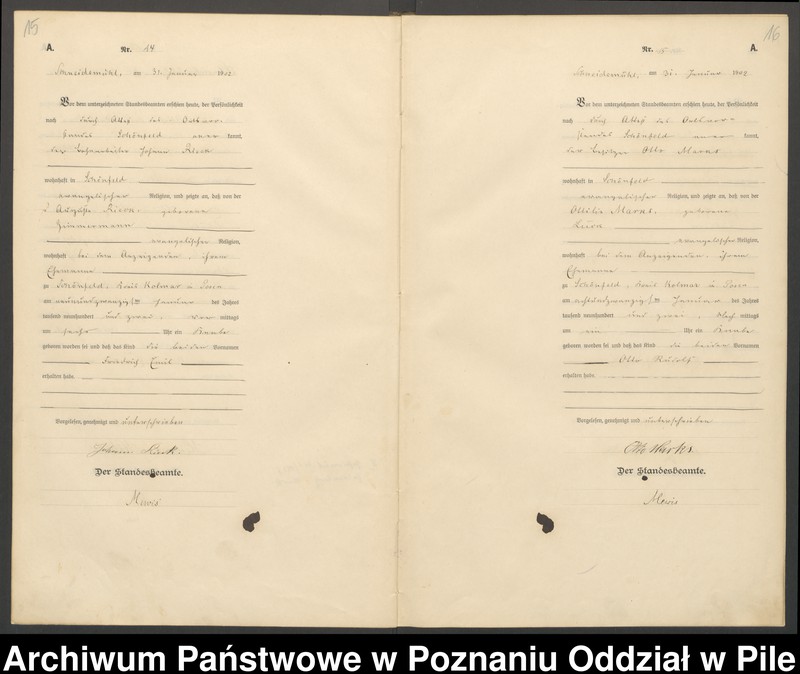 15
A.
Nr. 14
Schneidemühl, am 31. Januar 1902
Vor dem unterzeichneten Standesbeamten erschien heute, der Persönlichkeit
nach durch Attest des
Schönfeld kannt,
der Johann
wohnhaft in Schönfeld
evangelischer Religion, und zeigte an, daß von der
geborene
Zimmermann
evangelischer Religion,
wohnhaft bei dem Anzeigenden, ihrem
Ehemanne
zu Schönfeld, Kreis Kolmar in Posen
am neunundzwanzigsten Januar des Jahres
tausend neunhundert und zwei, vor mittags
um sechs Uhr ein Knabe
geboren worden sei und daß das Kind die beiden Vornamen
Friedrich Emil
erhalten habe.
Vorgelesen, genehmigt und unterschrieben
Johann
Der Standesbeamte.
Mewis
16
Nr.
A.
Schneidemühl, am 31. Januar 1902
Vor dem unterzeichneten Standesbeamten erschien heute, der Persönlichkeit
nach durch Attest des
Schönfeld kannt,
der Besitzer Otto
wohnhaft in Schönfeld
evangelischer Religion, und zeigte an, daß von der
Ottilie geborene
evangelischer Religion,
wohnhaft bei dem Anzeigenden, ihrem
Ehemanne
zu Schönfeld, Kreis Kolmar in Posen
am achtundzwanzigsten Januar des Jahres
tausend neunhundert und zwei, Nach mittags
um Uhr ein Knabe
geboren worden sei und daß das Kind die beiden Vornamen
Otto Rudolf
erhalten habe.
Vorgelesen, genehmigt und unterschrieben
Otto
Der Standesbeamte.
Mewis
Archiwum Państwowe w Poznaniu Oddział w Pile